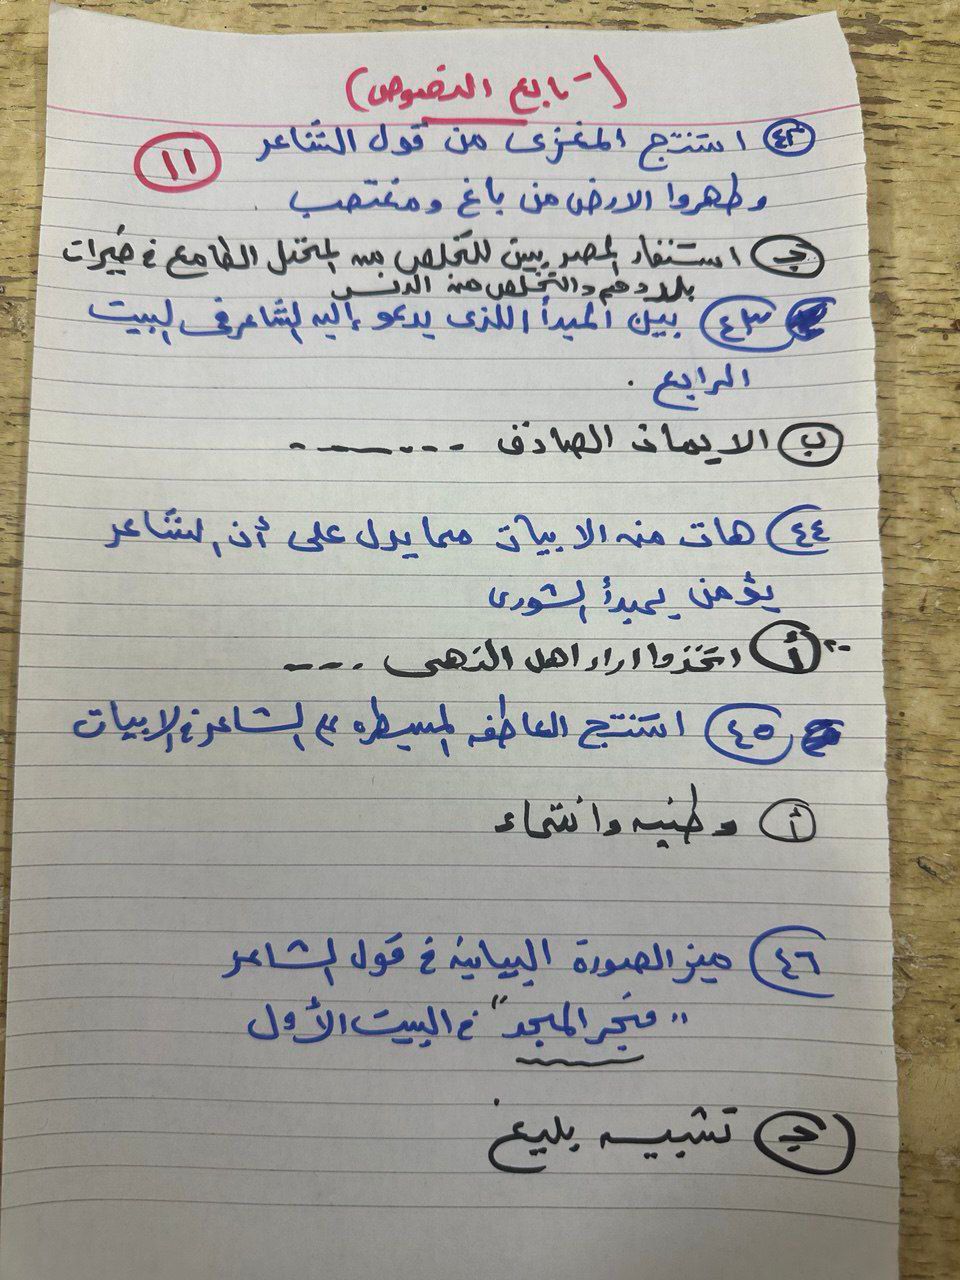 (تابع النصوص)
١١
٤٢ استنتج المغزى من قول الشاعر
وطهروا الارض من باغ ومغتصب .
جـ استنفار المصريين للتخلص من المحتل الطامع فى خيرات
بلادهم والتخلص من الدنس
٤٣ بين المبدأ اللذى يدعو إليه الشاعر فى البيت
الرابع .
ب الايمان الصادق ------
٤٤ هات من الابيات مما يدل على أن الشاعر
يؤمن بمبدأ الشورى
أ اتخذوا اراء اهل النهى ----
٤٥ استنتج العاطفه المسيطره ع الشاعر فى الابيات
أ وطنيه وانتماء
٤٦ ميز الصورة البيانيه فى قول الشاعر
" فجر المجد " فى البيت الأول
جـ تشبيه بليغ